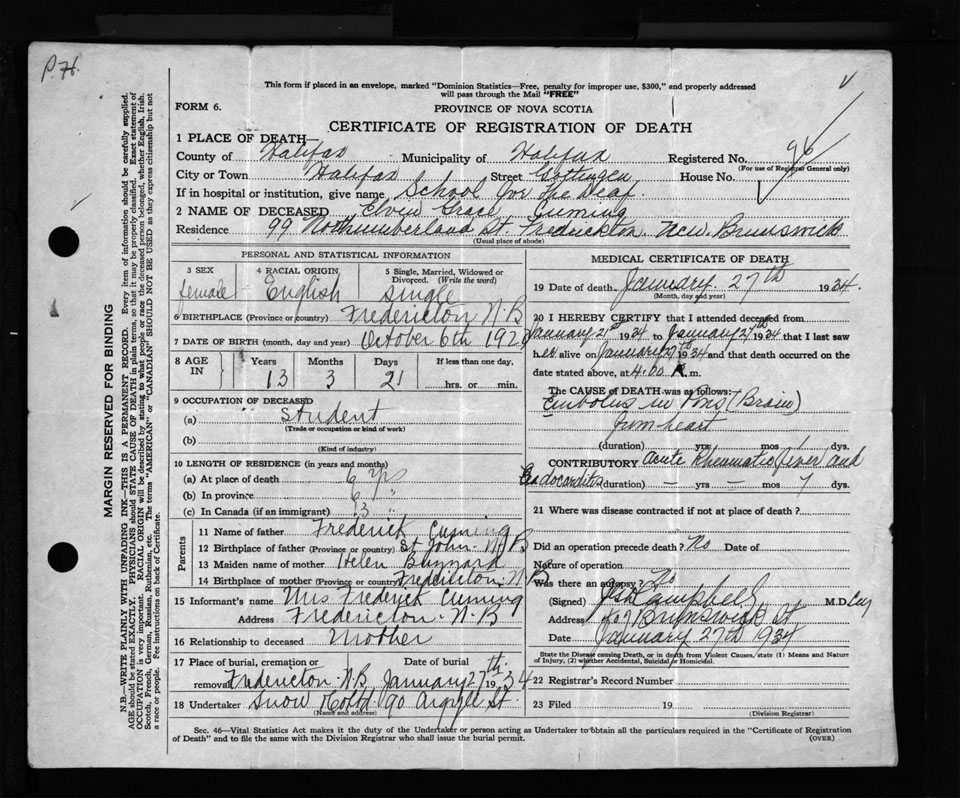 P.H.
This form if placed in an envelope, marked "Dominion Statistics—Free, penalty for improper use, $300," and properly addressed
will pass through the Mail "FREE"
FORM 6.
PROVINCE OF NOVA SCOTIA
CERTIFICATE OF REGISTRATION OF DEATH
1 PLACE OF DEATH—
County of Halifax Municipality of Halifax Registered No. 96
(For use of Registrar General only)
City or Town Halifax Street Gottingen House No.
If in hospital or institution, give name School for the Deaf
2 NAME OF DECEASED Grace Cuming
Residence 99 Northumberland St. Fredrickton. New Brunswick
(Usual place of abode)
PERSONAL AND STATISTICAL INFORMATION
3 SEX 4 RACIAL ORIGIN 5 Single, Married, Widowed or Divorced. (Write the word)
female English single
6 BIRTHPLACE (Province or country) Fredericton N.B
7 DATE OF BIRTH (month, day and year) October 6th 1920
8 AGE IN Years Months Days If less than one day,
13 3 21 hrs. or min.
9 OCCUPATION OF DECEASED
(a) Student
(Trade or occupation or kind of work)
(b)
(Kind of industry)
10 LENGTH OF RESIDENCE (in years and months)
(a) At place of death 6 yrs
(b) In province 6 "
(c) In Canada (if an immigrant) 13 "
Parents
11 Name of father Frederick Cuming
12 Birthplace of father (Province or country) St John N B
13 Maiden name of mother Helen
14 Birthplace of mother (Province or country) Fredericton N B
15 Informant's name Mrs Frederick Cuming
Address Fredericton N. B
16 Relationship to deceased Mother
17 Place of burial, cremation or removal Fredericton N.B Date of burial January 27th 1934
18 Undertaker Snow & Co Ltd. 90 Argyle St.
(Name and address)
MEDICAL CERTIFICATE OF DEATH
19 Date of death January 27th 1934.
(Month, day and year)
20 I HEREBY CERTIFY that I attended deceased from
January 21st 1934 to January 27th 1934 that I last saw
her alive on January 27 1934 and that death occurred on the
date stated above, at 4.00 A. m.
The CAUSE OF DEATH was as follows:
Embolus in Pons (Brain)
from heart
(duration) — yrs — mos 1 dys.
CONTRIBUTORY Acute Rheumatic fever and
Endocarditis (duration) — yrs — mos 7 dys.
21 Where was disease contracted if not at place of death?
Did an operation precede death? No Date of
Nature of operation
Was there an autopsy? No
(Signed) Campbell M.D.
Address Brunswick St
Date January 27th 1934
State the Disease causing Death, or in death from Violent Causes, state (1) Means and Nature
of Injury, (2) whether Accidental, Suicidal or Homicidal.
22 Registrar's Record Number
23 Filed 19
(Division Registrar)
Sec. 46—Vital Statistics Act makes it the duty of the Undertaker or person acting as Undertaker to obtain all the particulars required in the "Certificate of Registration
of Death" and to file the same with the Division Registrar who shall issue the burial permit.
(OVER)
MARGIN RESERVED FOR BINDING
N.B.—WRITE PLAINLY WITH UNFADING INK—THIS IS A PERMANENT RECORD. Every item of information should be carefully supplied.
AGE should be stated EXACTLY. PHYSICIANS should STATE CAUSE OF DEATH in plain terms, so that it may be properly classified. Exact statement of
OCCUPATION is very important. RACIAL ORIGIN will be described by stating to what people or race the deceased person belonged, whether English, Irish,
Scotch, French, German, Russian, Ruthenian, etc. The terms "AMERICAN" or "CANADIAN" SHOULD NOT BE USED as they express citizenship but not
a race or people. Fee instructions on back of Certificate.